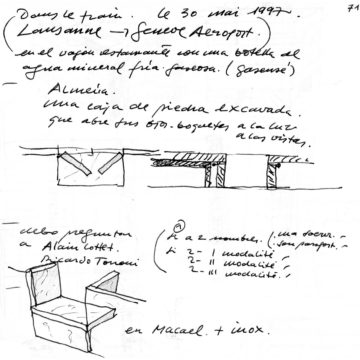 71
Dans le train. le 30 mai 1997.
(Lausanne → Geneve Aeroport.
en el vagón restaurante con una botella de
agua mineral fría gaseosa. (gaseusé)
Almería.
una caja de piedra excavada.
que abre sus ojos. boquetes a la luz
a las vistas.
debo preguntar
a Alain Cottet.
Ricardo
Si a 2 nombres.
Si 2 - I modalité
2 - II modalité
2 - III modalité
en Macael. + inox.